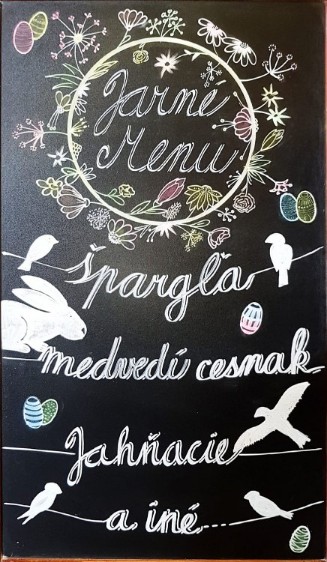 Jarné
Menu
Špargľa
medvedí cesnak
Jahňacie
a iné...